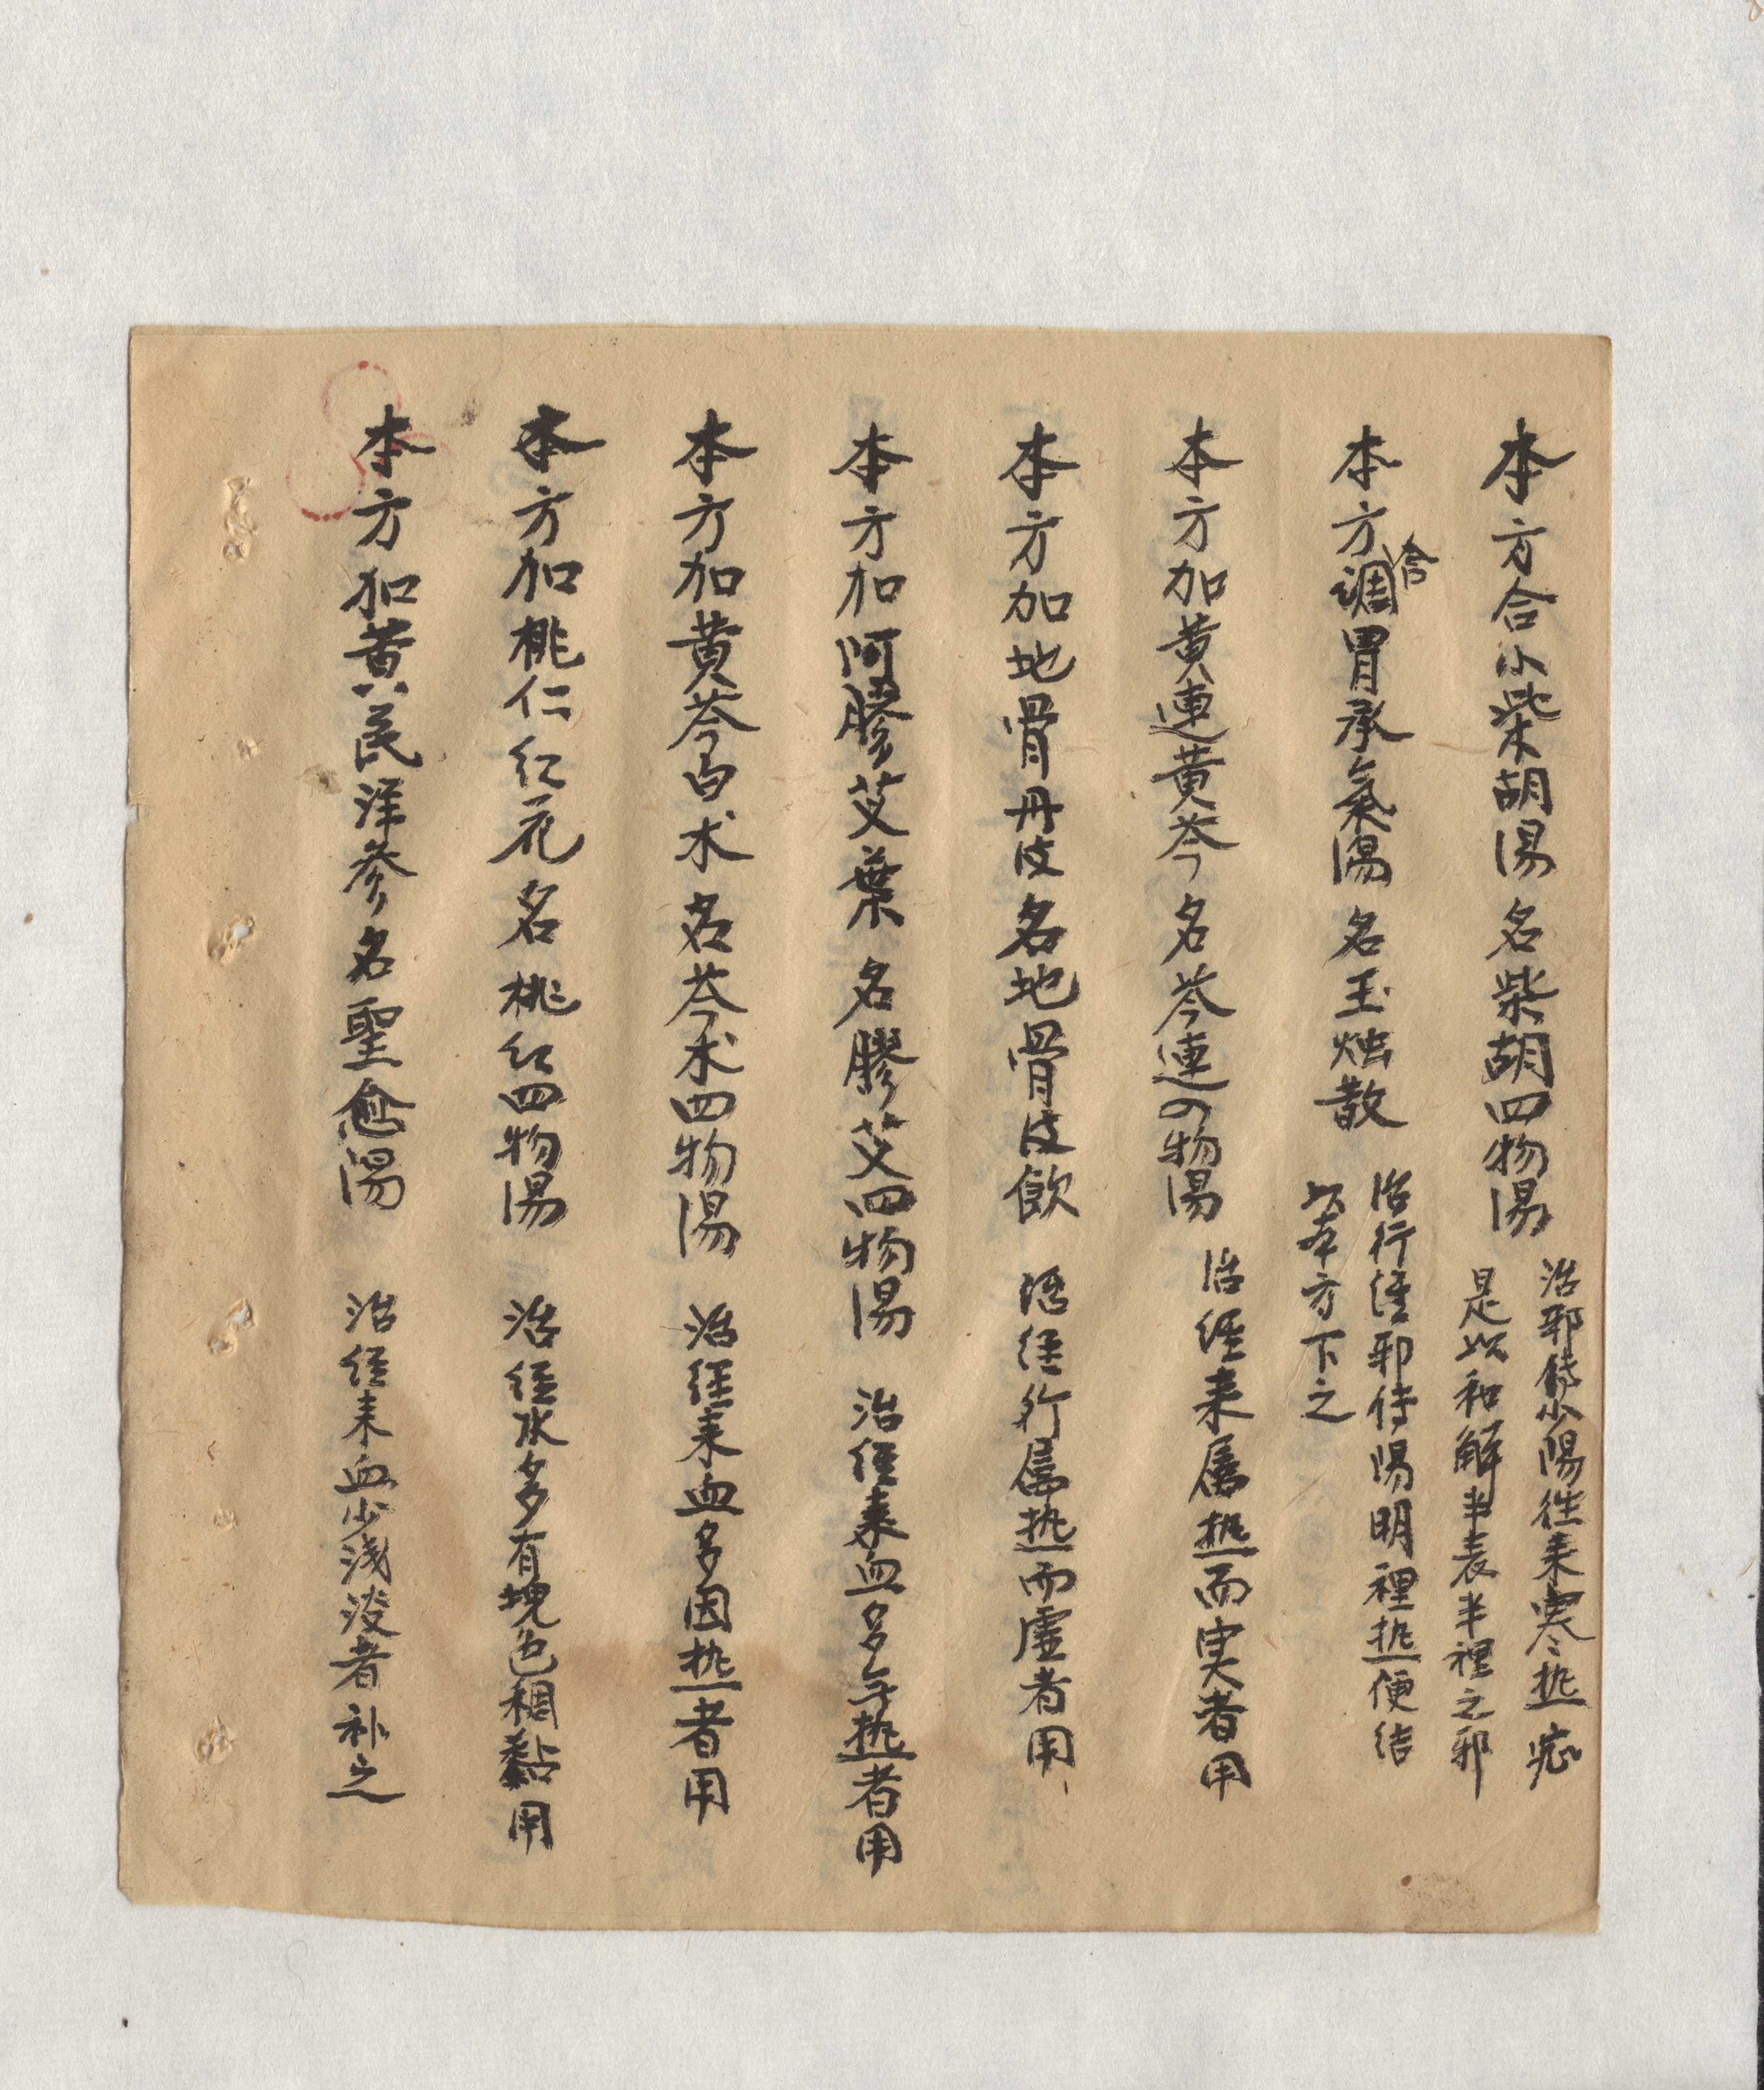 本方合小柴胡湯 名柴胡四物湯
治邪傳少陽往来寒热症
是以和解半表半裡之邪
本方合調胃承氣湯 名玉烛散
治行经邪传陽明裡热便结
以本方下之
本方加黄連黄芩 名芩連四物湯 治经来属热而实者用
本方加地骨丹皮 名地骨皮飲 治经行属热而虚者用
本方加阿膠艾葉 名膠艾四物湯 治经来血多无热者用
本方加黄芩白术 名芩术四物湯 治经来血多因热者用
本方加桃仁红花 名桃红四物湯 治经水多有塊色稠黏用
本方加黄芪洋参 名聖愈湯 治经来血少浅淡者补之